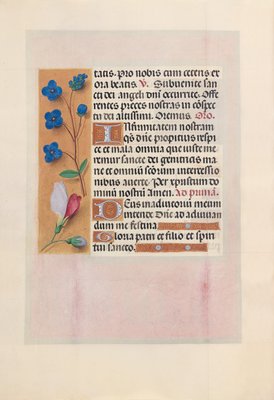 tatis. Pro nobis cum ceteris et
ora beatis. V. Subvenite san
cti dei angeli dni occurrite. Offe
rentes preces nostras in cospe
ctu dei altissimi. Oremus. Oro.
Infirmitatem nostram
qs dne propitius respi
ce et mala omnia que iuste me
remur sancte dei genitricis ma
rie et omniū scōrum intercessio
nibus averte. Per xpistum do
minū nostrū Amen. Ad primā.
Deus in adiutoriū meum
intende. Dne ad adiuvan
dum me festina
Gloria patri et filio et spiri
tui sancto.